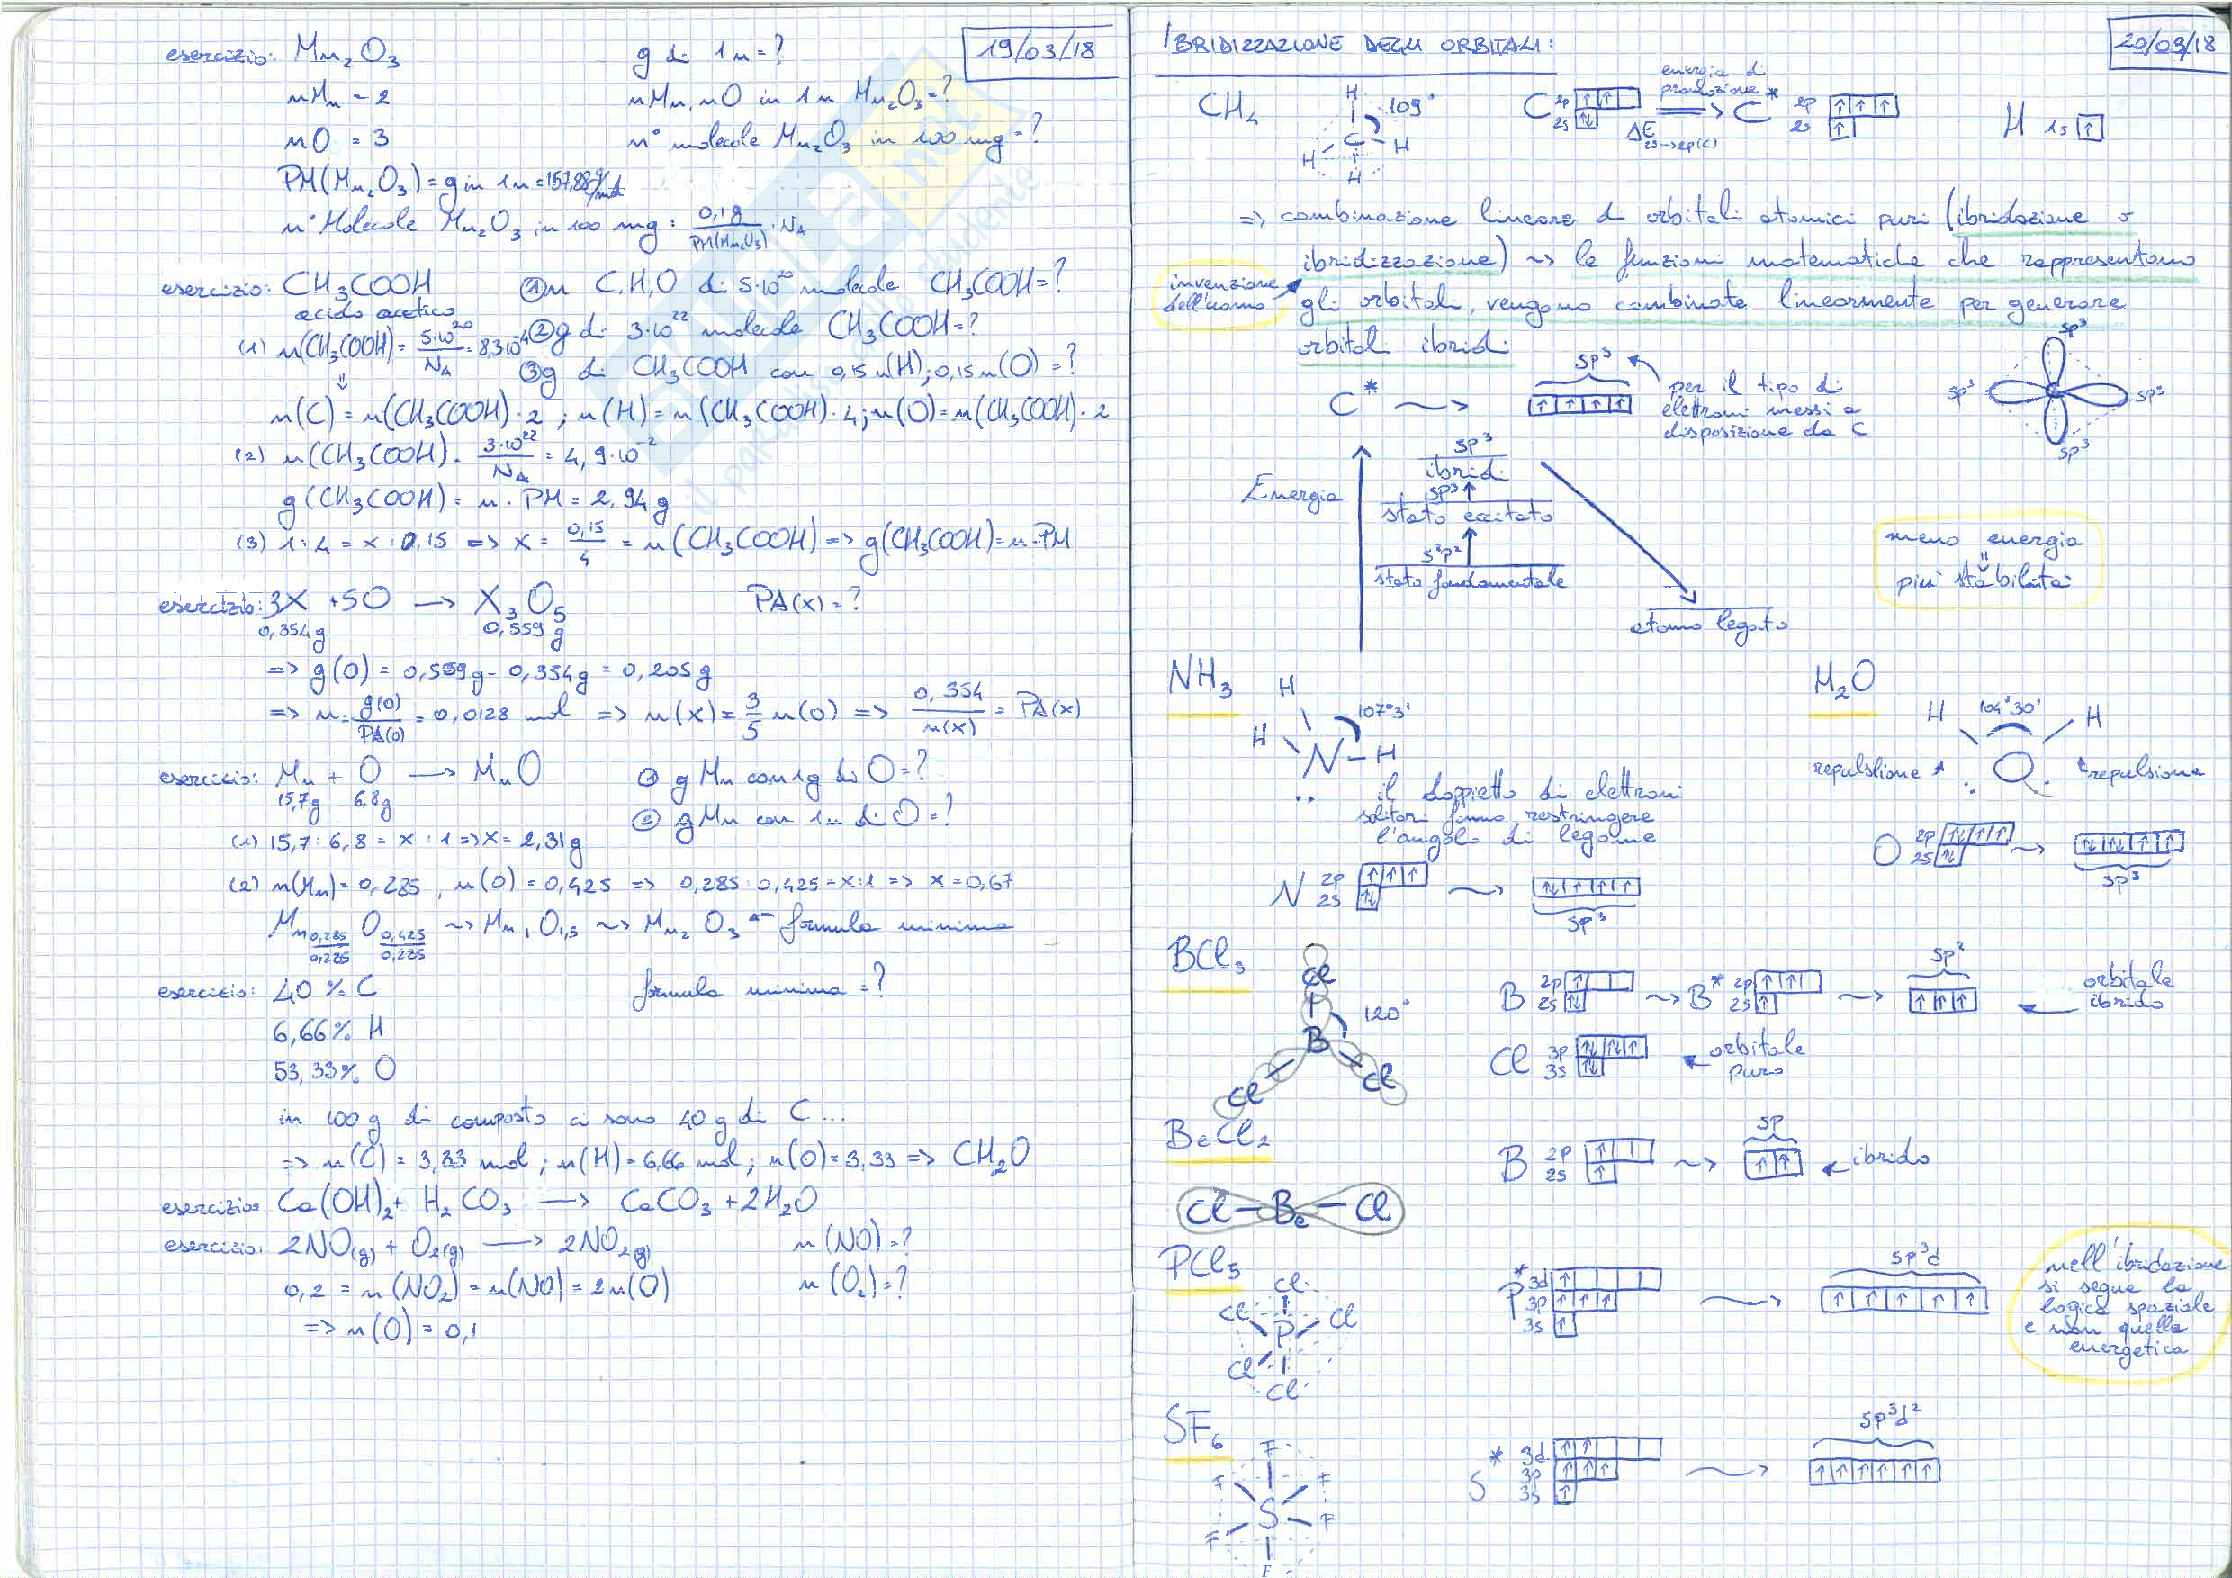 19/03/18
esercizio: Mn₂O₃ g di 1n = ?
nMn = 2 nMn, nO in 1n Mn₂O₃ = ?
nO = 3 n° molecole Mn₂O₃ in 100 mg = ?
PM(Mn₂O₃) = g in 1n = 157,88 g/mol
n° Molecole Mn₂O₃ in 100 mg : 0,1g/PM(Mn₂O₃) · NA
esercizio: CH₃COOH ① n C,H,O di 5·10²⁰ molecole CH₃COOH = ?
acido acetico ② g di 3·10²² molecole CH₃COOH = ?
(1) n(CH₃COOH) = 5·10²⁰/NA = 8,3·10⁻⁴ ③ g di CH₃COOH con 0,15 n(H); 0,15 n(O) = ?
n(C) = n(CH₃COOH)·2 ; n(H) = n(CH₃COOH)·4; n(O) = n(CH₃COOH)·2
(2) n(CH₃COOH) = 3·10²²/NA = 4,9·10⁻²
g(CH₃COOH) = n · PM = 2,94 g
(3) 1:4 = x : 0,15 => x = 0,15/4 = n(CH₃COOH) => g(CH₃COOH) = n·PM
esercizio: 3X + 5O → X₃O₅ PA(x) = ?
0,354g 0,559 g
=> g(O) = 0,559g - 0,354g = 0,205g
=> n = g(O)/PA(O) = 0,0128 mol => n(x) = 3/5 n(O) => 0,354/n(x) = PA(x)
esercizio: Mn + O → MnO ① g Mn con 1g di O = ?
15,7g 6,8g ② g Mn con 1n di O = ?
(1) 15,7 : 6,8 = x : 1 => x = 2,31g
(2) n(Mn) = 0,285 , n(O) = 0,425 => 0,285 : 0,425 = x:1 => x = 0,67
Mn 0,285/0,285 O 0,425/0,285 ~> Mn₁O₁,₅ ~> Mn₂O₃ ← formula minima
esercizio: 40 % C formula minima = ?
6,66% H
53,33% O
in 100 g di composto ci sono 40 g di C...
=> n(C) = 3,33 mol ; n(H) = 6,66 mol; n(O) = 3,33 => CH₂O
esercizio: Ca(OH)₂ + H₂CO₃ → CaCO₃ + 2H₂O
esercizio: 2NO(g) + O₂(g) → 2NO₂(g) n(NO) = ?
0,2 = n(NO₂) = n(NO) = 2n(O) n(O₂) = ?
=> n(O) = 0,1
IBRIDIZZAZIONE DEGLI ORBITALI: 20/03/18
CH₄ H 109° C H H H C 2p 2s energia di promozione ΔE 2s→2p(C) C* 2p 2s H 1s
=> combinazione lineare di orbitali atomici puri (ibridazione o
ibridizzazione) ~> le funzioni matematiche che rappresentano
invenzione dell'uomo gli orbitali, vengono combinate linearmente per generare
orbitali ibridi
C* ~> sp³
per il tipo di
elettroni messi a
disposizione da C
sp³ sp³ sp³ sp³
Energia
sp³
ibridi
sp³
stato eccitato
s²p²
stato fondamentale
atomo legato
meno energia
⇓
più stabilità
NH₃ H H N H 107°3'
il doppietto di elettroni
solitari fanno restringere
l'angolo di legame
N 2p 2s ~> sp³
H₂O H 104°30' H
repulsione O repulsione
O 2p 2s ~> sp³
BCl₃ Cl B Cl Cl 120°
B 2p 2s ~> B* 2p 2s ~> sp² orbitale ibrido
Cl 3p 3s orbitale puro
BeCl₂
B 2p 2s ~> sp ibrido
Cl—Be—Cl
PCl₅ Cl Cl Cl P Cl Cl
P* 3d 3p 3s ~> sp³d
nell'ibridazione
si segue la
logica spaziale
e non quella
energetica
SF₆ F F F S F F F
S* 3d 3p 3s ~> sp³d²